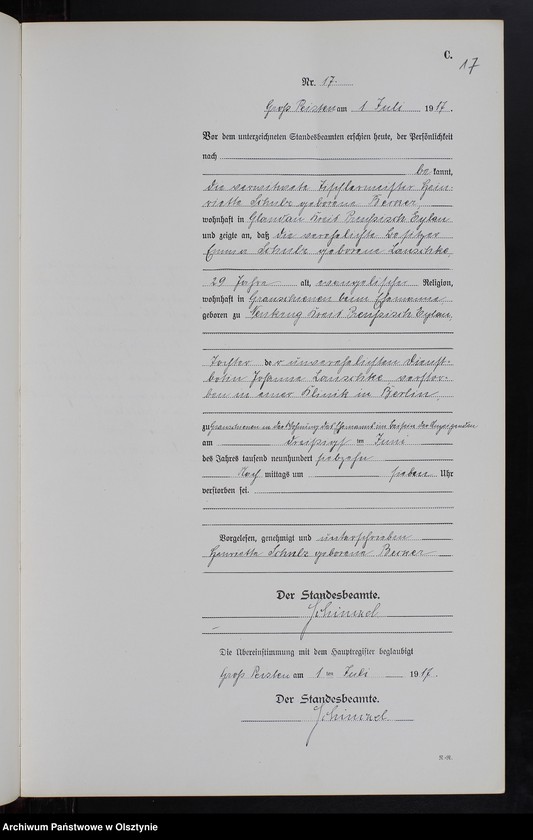 C.
17
Nr. 17.
Groß Peisten am 1 Juli 1917.
Vor dem unterzeichneten Standesbeamten erschien heute, der Persönlichkeit
nach
be kannt,
die verwitwete Töpfermeister Hen-
riette Schulz geborene Berner
wohnhaft in Glandau Kreis Preußisch Eylau
und zeigte an, daß die verehelichte Besitzer
Emma Schulz geborene
29 Jahre alt, evangelischer Religion,
wohnhaft in beim Ehemanne
geboren zu Kreis Preußisch Eylau,
Tochter der unverehelichten Dienst-
botin Johanna verstor-
ben in einer Klinik in Berlin
zu in der Wohnung des Ehemanns im Beisein der Anzeigenden
am dreißigsten Juni
des Jahres tausend neunhundert siebzehn
Nach mittags um sieben Uhr
verstorben sei.
Vorgelesen, genehmigt und unterschrieben
Henriette Schulz geborene Berner
Der Standesbeamte.
Die Übereinstimmung mit dem Hauptregister beglaubigt
Groß Peisten am 1 ten Juli 1917.
Der Standesbeamte.
Archiwum Państwowe w Olsztynie